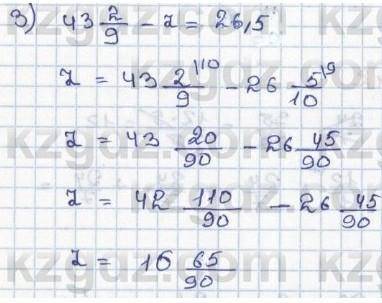 3) 43 2/9 - z = 26,5
z = 43 2/9 |10 - 26 5/10 |9
z = 43 20/90 - 26 45/90
z = 42 110/90 - 26 45/90
z = 16 65/90